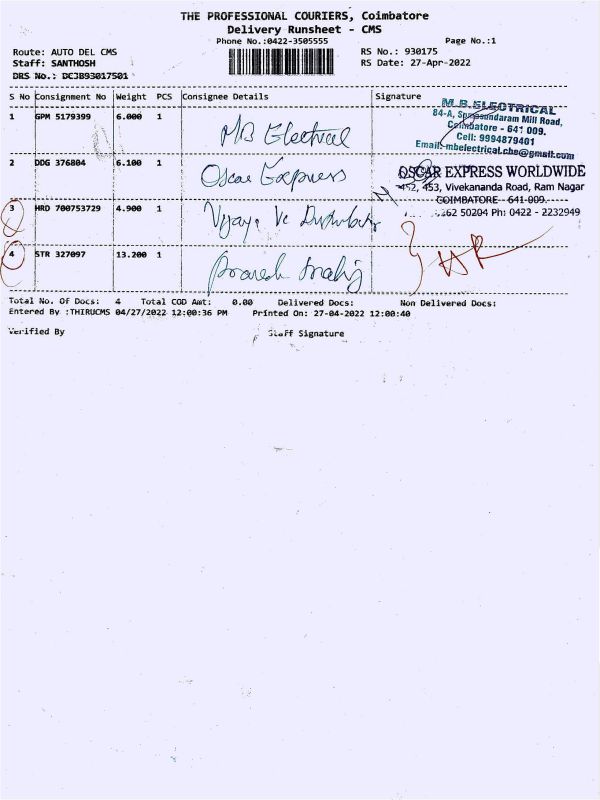 THE PROFESSIONAL COURIERS, Coimbatore
Delivery Runsheet - CMS
Phone No.:0422-3505555
Page No.:1
Route: AUTO DEL CMS
RS No.: 930175
Staff: SANTHOSH
RS Date: 27-Apr-2022
DRS No.: DC3B93017501
S No Consignment No Weight PCS Consignee Details Signature
1 GPM 5179399 6.000 1 MB Electrical
M.B.ELECTRICAL
84-A, Sundaram Mill Road,
Coimbatore - 641 009.
Cell: 9994879401
Email:mbelectrical.cbe@gmail.com
2 DDG 376804 6.100 1 Oscar Express
OSCAR EXPRESS WORLDWIDE
452, 453, Vivekananda Road, Ram Nagar
COIMBATORE - 641-009.
262 50204 Ph: 0422 - 2232949
3 HRD 700753729 4.900 1 Vijaya
4 STR 327097 13.200 1
Total No. Of Docs: 4 Total COD Amt: 0.00 Delivered Docs: Non Delivered Docs:
Entered By :THIRUCMS 04/27/2022 12:00:36 PM Printed On: 27-04-2022 12:00:40
Verified By Staff Signature